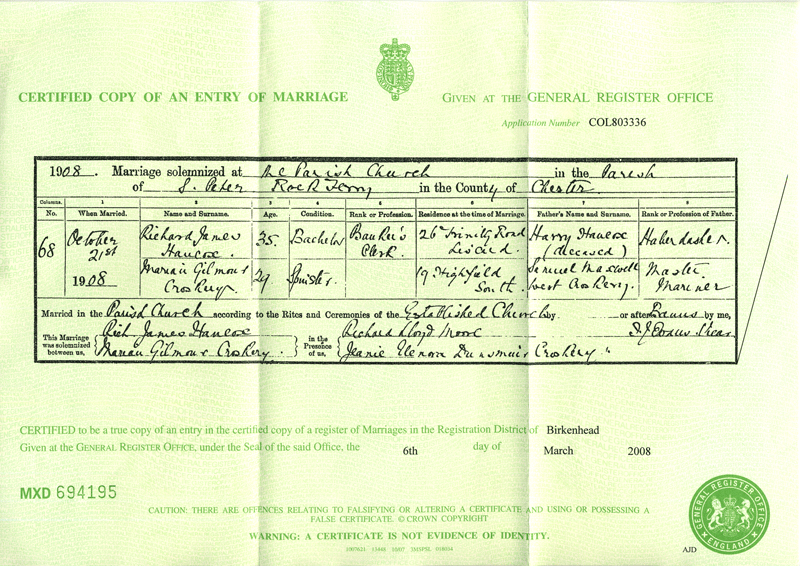 CERTIFIED COPY OF AN ENTRY OF MARRIAGE
GIVEN AT THE GENERAL REGISTER OFFICE
Application Number COL803336
1908. Marriage solemnized at the Parish Church in the Parish
of S. Peter Rock Ferry in the County of Chester.
Columns. 1 2 3 4 5 6 7 8
No. When Married. Name and Surname. Age. Condition. Rank or Profession. Residence at the time of Marriage. Father's Name and Surname. Rank or Profession of Father.
68 October 21st 1908
Richard James Hancox 35. Bachelor Banker's Clerk. 26 Trinity Road Liscard. Harry Hancox (deceased) Haberdasher.
Marian Gilmour Croskery. 29 Spinster. 19 Highfield South. Samuel Maxwell West Croskery. Master Mariner
Married in the Parish Church according to the Rites and Ceremonies of the Established Church by or after Banns by me,
This Marriage was solemnized between us, Rich James Hancox Marian Gilmour Croskery. in the Presence of us, Richard Lloyd Moore Jeanie Elenora Dunsmuir Croskery. Evans Vicar
CERTIFIED to be a true copy of an entry in the certified copy of a register of Marriages in the Registration District of Birkenhead
Given at the GENERAL REGISTER OFFICE, under the Seal of the said Office, the 6th day of March 2008
MXD 694195
CAUTION: THERE ARE OFFENCES RELATING TO FALSIFYING OR ALTERING A CERTIFICATE AND USING OR POSSESSING A
FALSE CERTIFICATE. © CROWN COPYRIGHT
WARNING: A CERTIFICATE IS NOT EVIDENCE OF IDENTITY.
GENERAL REGISTER OFFICE
ENGLAND
AJD